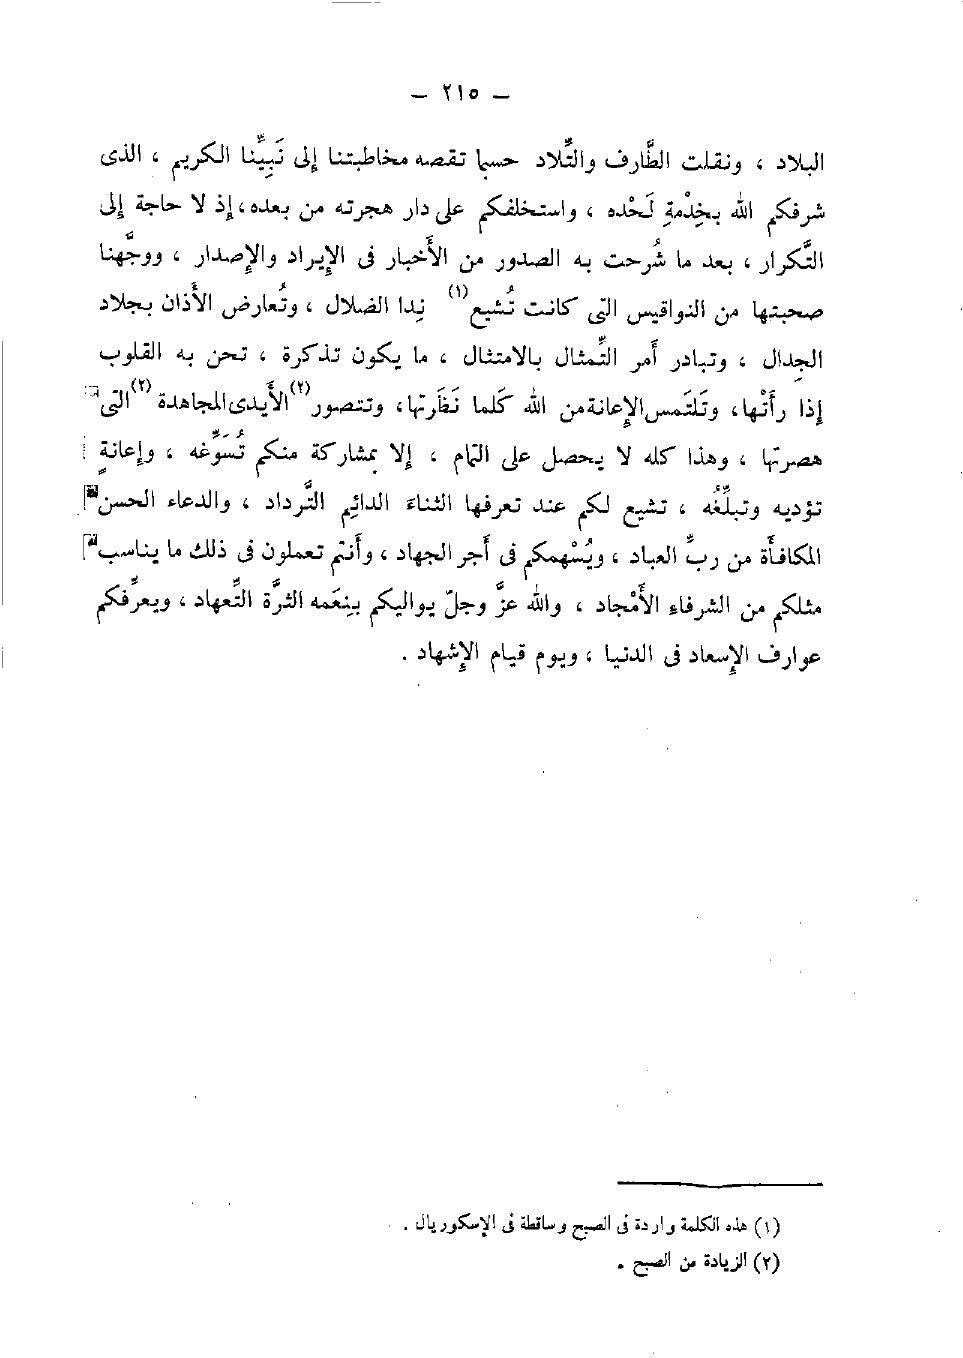 — ٢١٥ —
البلاد ، ونقلت الطَّارف والتِّلاد حسبما تقصه مخاطبتنا إلى نَبِيِّنا الكريم ، الذى
شرفكم الله بخِدْمةِ لَحْده ، واستخلفكم على دار هجرته من بعده ، إذ لا حاجة إلى
التَّكرار ، بعد ما شُرحت به الصدور من الأخبار فى الإيراد والإصدار ، ووجَّهنا
صحبتها من النواقيس التى كانت تُشيع(١) نِدا الضلال ، وتُعارض الأذان بجلاد
الجدال ، وتبادر أمر التِّمثال بالامتثال ، ما يكون تذكرة ، تحن به القلوب
إذا رأتْها ، وتَلتَمس الإعانة من الله كلما نَظَرتها ، وتتصور(٢) الأيدى المجاهدة(٢) التى
هصرتها ، وهذا كله لا يحصل على التمام ، إلا بمشاركة منكم تُسَوِّغه ، وإعانةٍ
تؤديه وتبلِّغُه ، تشيع لكم عند تعرفها الثناءَ الدائم التَّرداد ، والدعاء الحسن
المكافأة من ربِّ العباد ، ويُسْهمكم فى أجر الجهاد ، وأنتم تعملون فى ذلك ما يناسب
مثلكم من الشرفاءِ الأمْجاد ، والله عزَّ وجلّ يواليكم بنِعَمه الثرَّة التِّعهاد ، ويعرِّفكم
عوارف الإسعاد فى الدنيا ، ويوم قيام الإشهاد .
(١) هذه الكلمة واردة فى الصبح وساقطة فى الإسكوريال .
(٢) الزيادة من الصبح .